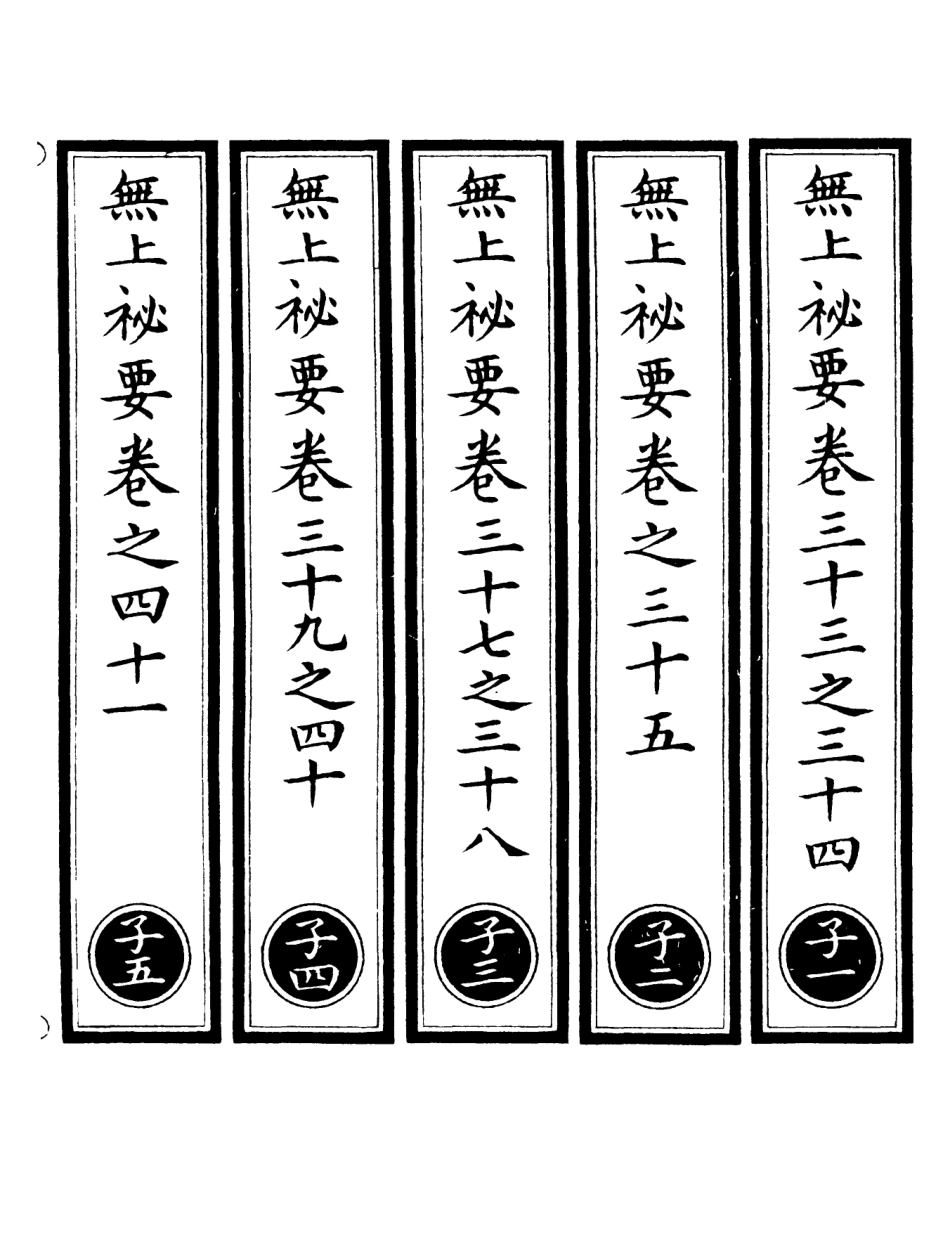 無上祕要卷三十三之三十四
子一
無上祕要卷之三十五
子二
無上祕要卷三十七之三十八
子三
無上祕要卷三十九之四十
子四
無上祕要卷之四十一
子五